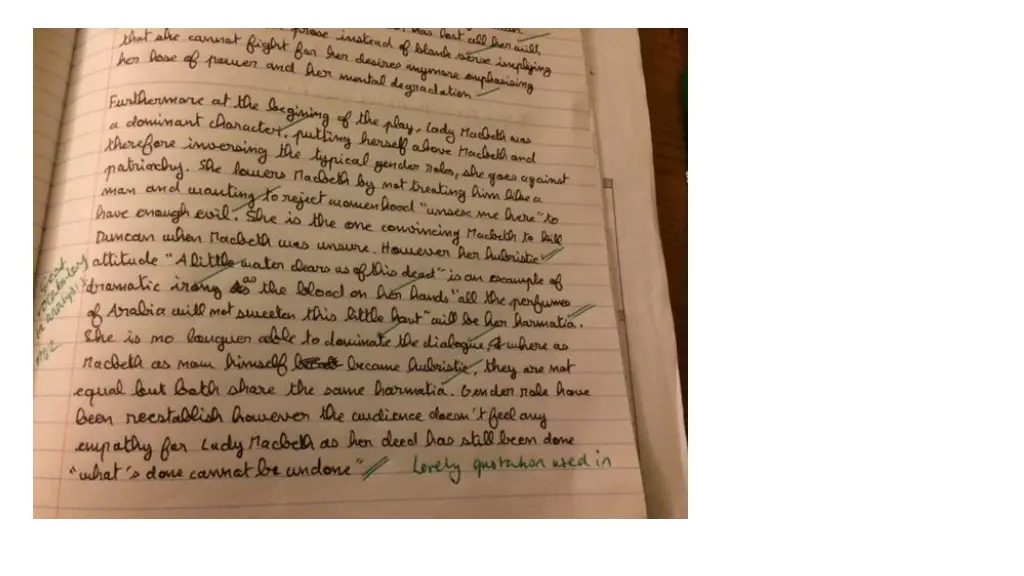 was lost all her will
prose instead of blank verse implying
that she cannot fight for her desires anymore emphasising
her lose of power and her mental degradation
Furthermore at the begining of the play, Lady Macbeth was
a dominant character, putting herself above Macbeth and
therefore inversing the typical gender roles, she goes against
patriarchy. She lowers Macbeth by not treating him like a
man and wanting to reject womenhood "unsex me here" to
have enough evil. She is the one convincing Macbeth to kill
Duncan when Macbeth was unsure. However her hubristic
attitude "A little water clears us of this dead" is an example of
dramatic irony as the blood on her hands "all the perfumes
of Arabia will not sweeten this little hart" will be her harmatia.
She is no longuer able to dominate the dialogue, where as
Macbeth as now himself became hubristic, they are not
equal but both share the same harmatia. Gender role have
been reestablish however the audience doesn't feel any
empathy for Lady Macbeth as her deed has still been done
"what's done cannot be undone" Lovely quotation used in
Great
vocabulary
in analysis
AO2